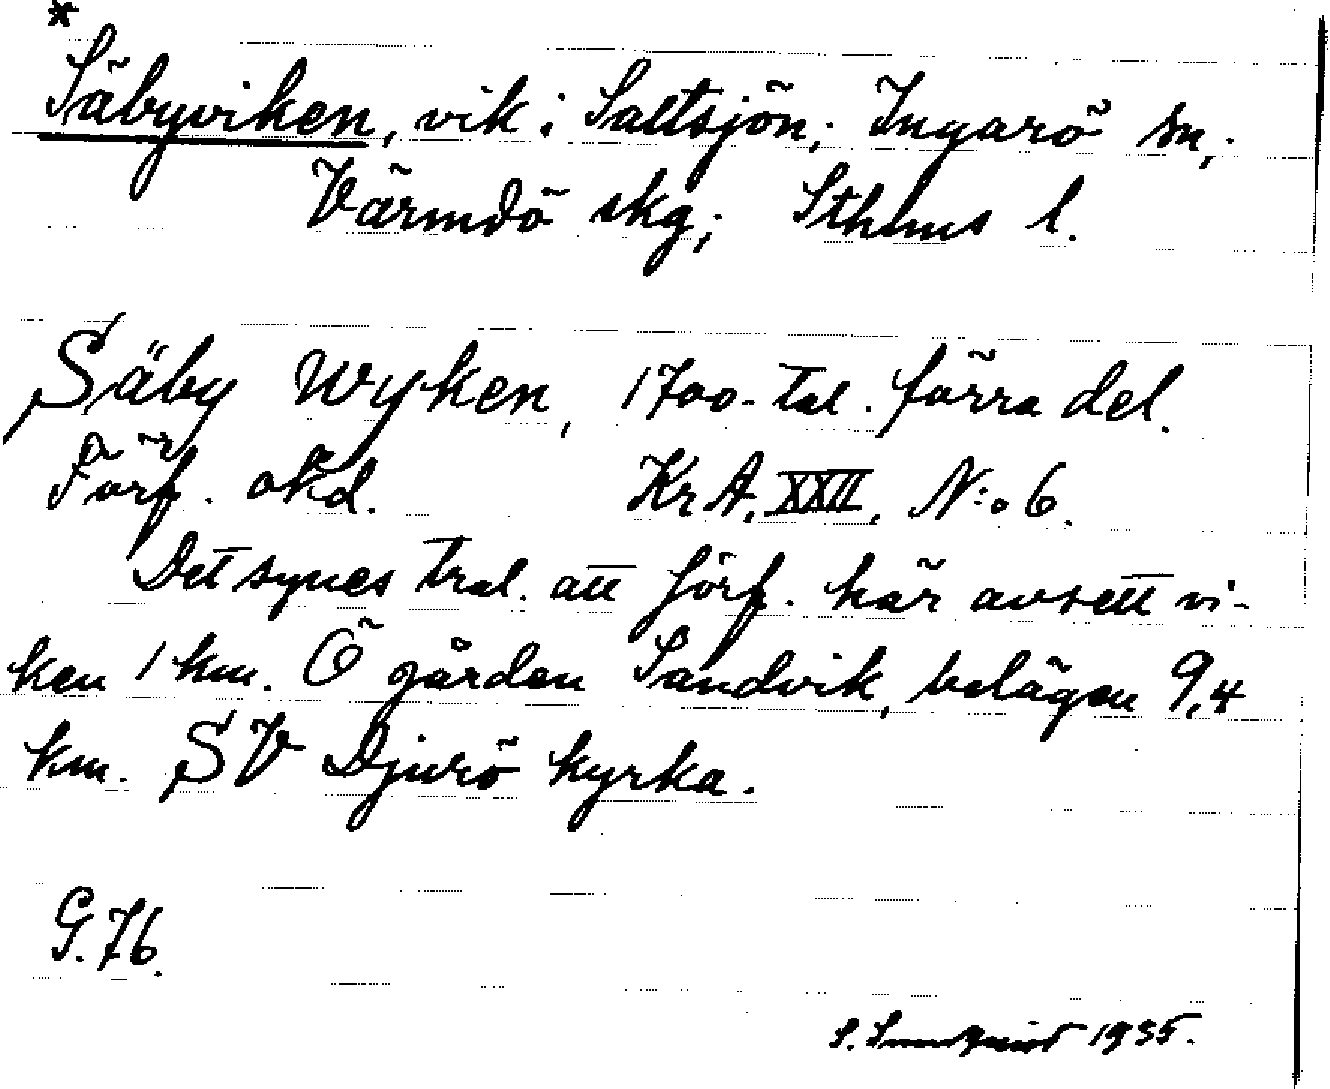 *
Säbyviken, vik i Saltsjön; Ingarö sn,
Värmdö skg; Sthms l.
Säby Wyken, 1700-tal. förra del.
Förf. okd. KrA. XXII, N:o 6.
Det synes trol. att förf. här avsett vi-
ken 1 km. Ö gården Sandvik, belägen 9,4
km. SV Djurö kyrka.
G.76.
S. 1935.